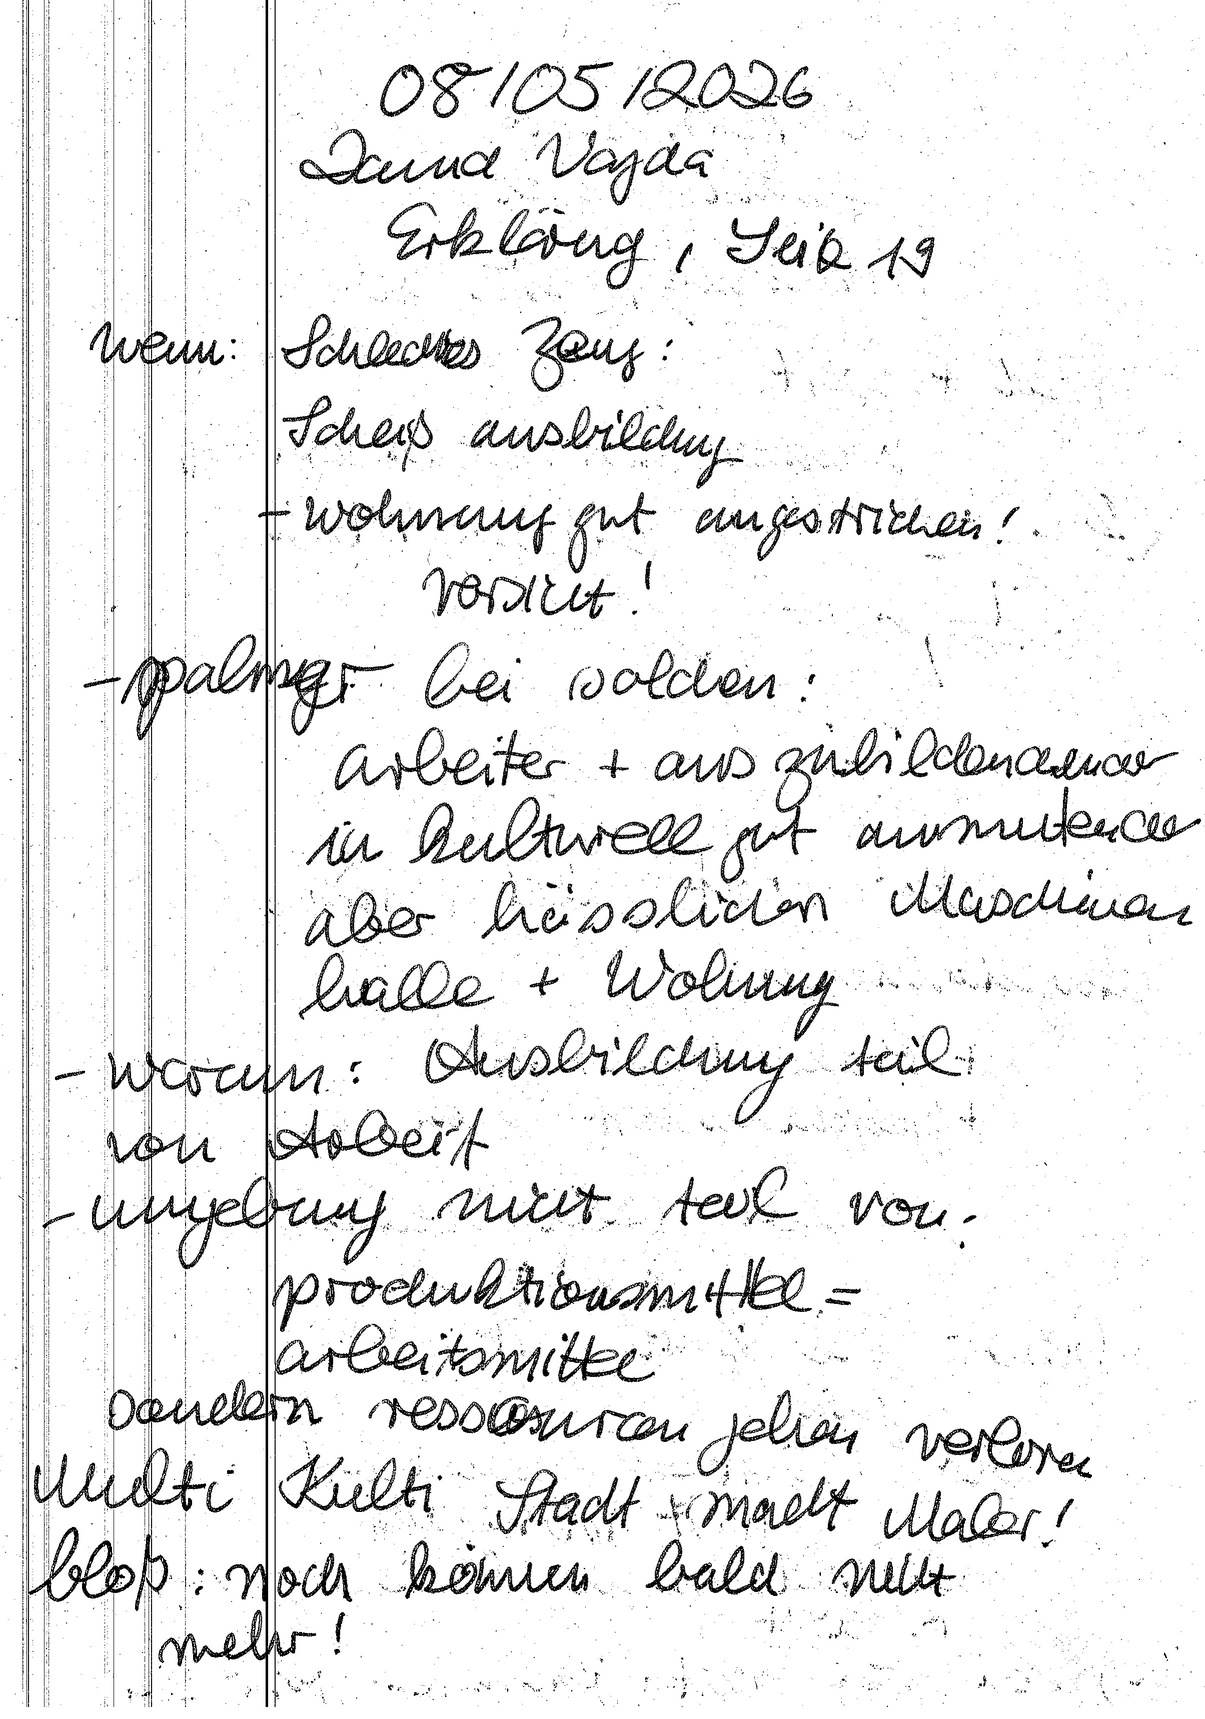 08/05/2026
David Vajda
Erklärung, Seite 19
wenn: Schlechtes Zeug:
Scheiß ausbildung
- Wohnung gut angestrichen!
verdict!
- bei solchen:
arbeiter + auszubildender
in kulturell gut anmutender
aber hässlichen Maschinen
halle + Wohnung
- Warum: Ausbildung teil
von Arbeit
- umgebung nicht teil von:
produktionsmittel =
arbeitsmittel
sondern ressourcen gehen verloren
Multi Kulti Stadt macht Maler!
bloß: noch können bald nicht
mehr!